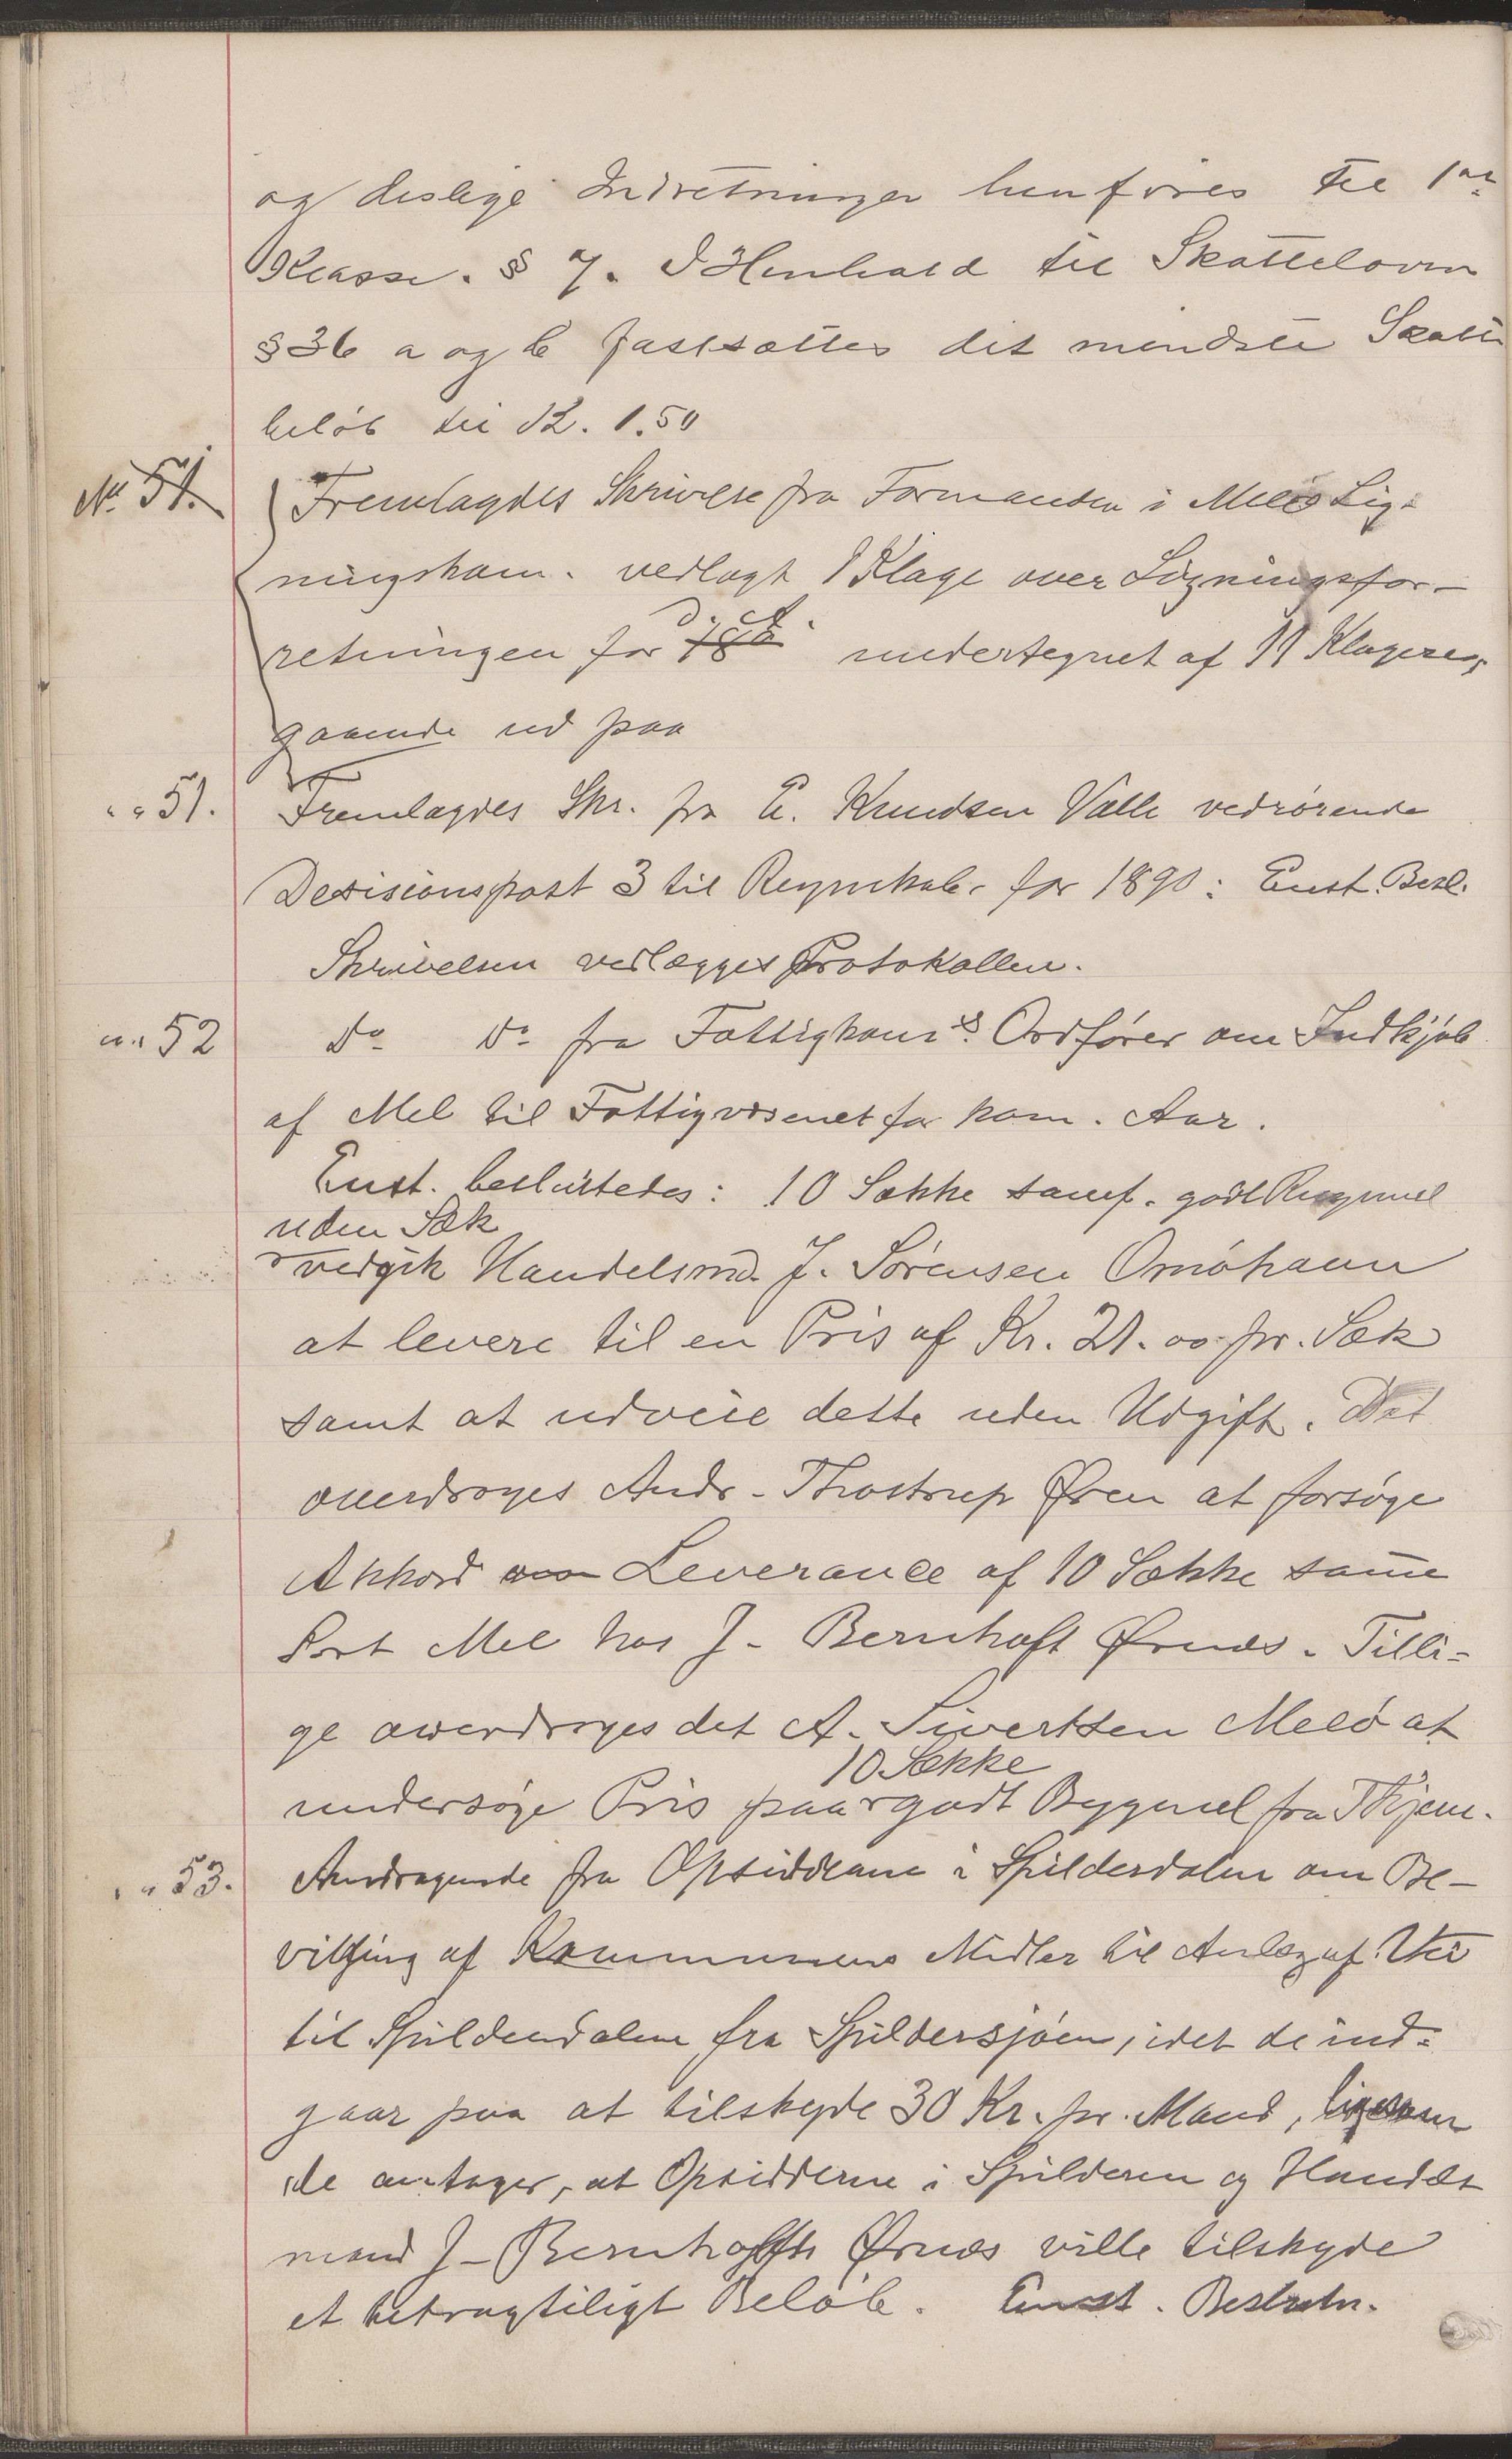 og deslige Indretninger henføres til 1ste
Klasse. § 7. I Henhold til Skatteloven
§ 36 a og b fastsættes det mindste Skatte
beløb til Kr. 1.50
No 51. Fremlagdes Skrivelse fra Formanden i Melø Lig-
ningskom. vedlagt 1 Klage over Ligningsfor-
d. A.
retningen for 18 undertegnet af 11 Klagere,
gaaende ud paa
" " 51. Fremlagdes Skr. fra E. Knudsen Valle vedrørende
Desisionspost 3 til Regnskabe for 1890: Enst. Besl.
Skrivelsen vedlægges Protokollen.
" " 52 Do Do fra Fattigkoms. Ordfører om Indkjøb
af Mel til Fattigvæsenet for kom. Aar.
Enst. besluttedes: 10 Sække samf. godt Rugmel
uden Sæk
vedgik Handelsmd. J. Sørensen Ørnøhavn
at levere til en Pris af Kr. 21.00 pr. Sæk
samt at udveie dette uden Udgift. Det
overdroges Andr. Throstrup Øren at forsøge
Akkord om Leverance af 10 Sække same
Sort Mel hos J. Bernhoft Ørnes. Tilli-
ge overdroges det A. Sivertsen Melø at
10 Sække
undersøge Pris paa godt Bygmel fra Thjem.
" " 53. Andragende fra Opsidderne i Spilderdalen om Be-
vilging af Kommunens Midler til Anlæg af Vei
til Spilderdalen fra Spildersjøen, idet de ind-
gaar paa at tilskyde 30 Kr. pr. Mand, ligesom
de antager, at Opsidderne i Spilderen og Handels
mand J. Bernhoft Ørnes ville tilskyde
et betragtiligt Beløb. Enst. Beslutn.